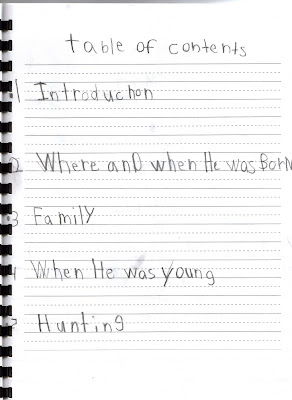 table of contents
1 Introduchon
2 Where anD when He was BorN
3 Family
4 When He was young
Hunting